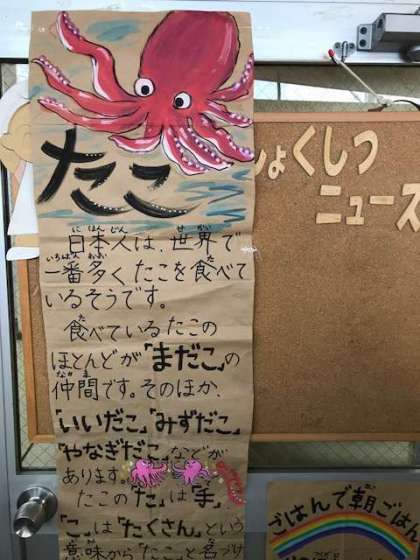 たこ
日本人は、世界で
一番多くたこを食べて
いるそうです。
食べているたこの
ほとんどが「まだこ」の
仲間です。そのほか、
「いいだこ」「みずだこ」
「やなぎだこ」などが
あります。
たこの「た」は「手」、
「こ」は「たくさん」という
意味から「たこ」と名づけ
しょくしつ
ニュース
ごはんで朝ごはん